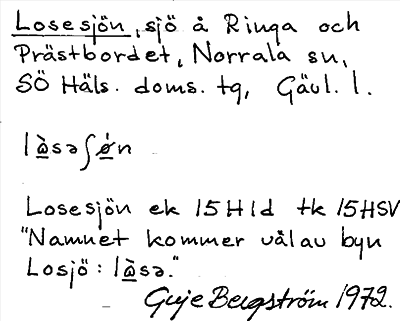 Losesjön, sjö å Ringa och
Prästbordet, Norrala sn,
SÖ Häls. doms. tg, Gävl. l.
lὰ̲səʃǿ̲n
Losesjön ek 15H1d tk 15HSV
"Namnet kommer väl av byn
Losjö: lὰ̲sə."
Guje Bergström 1972.